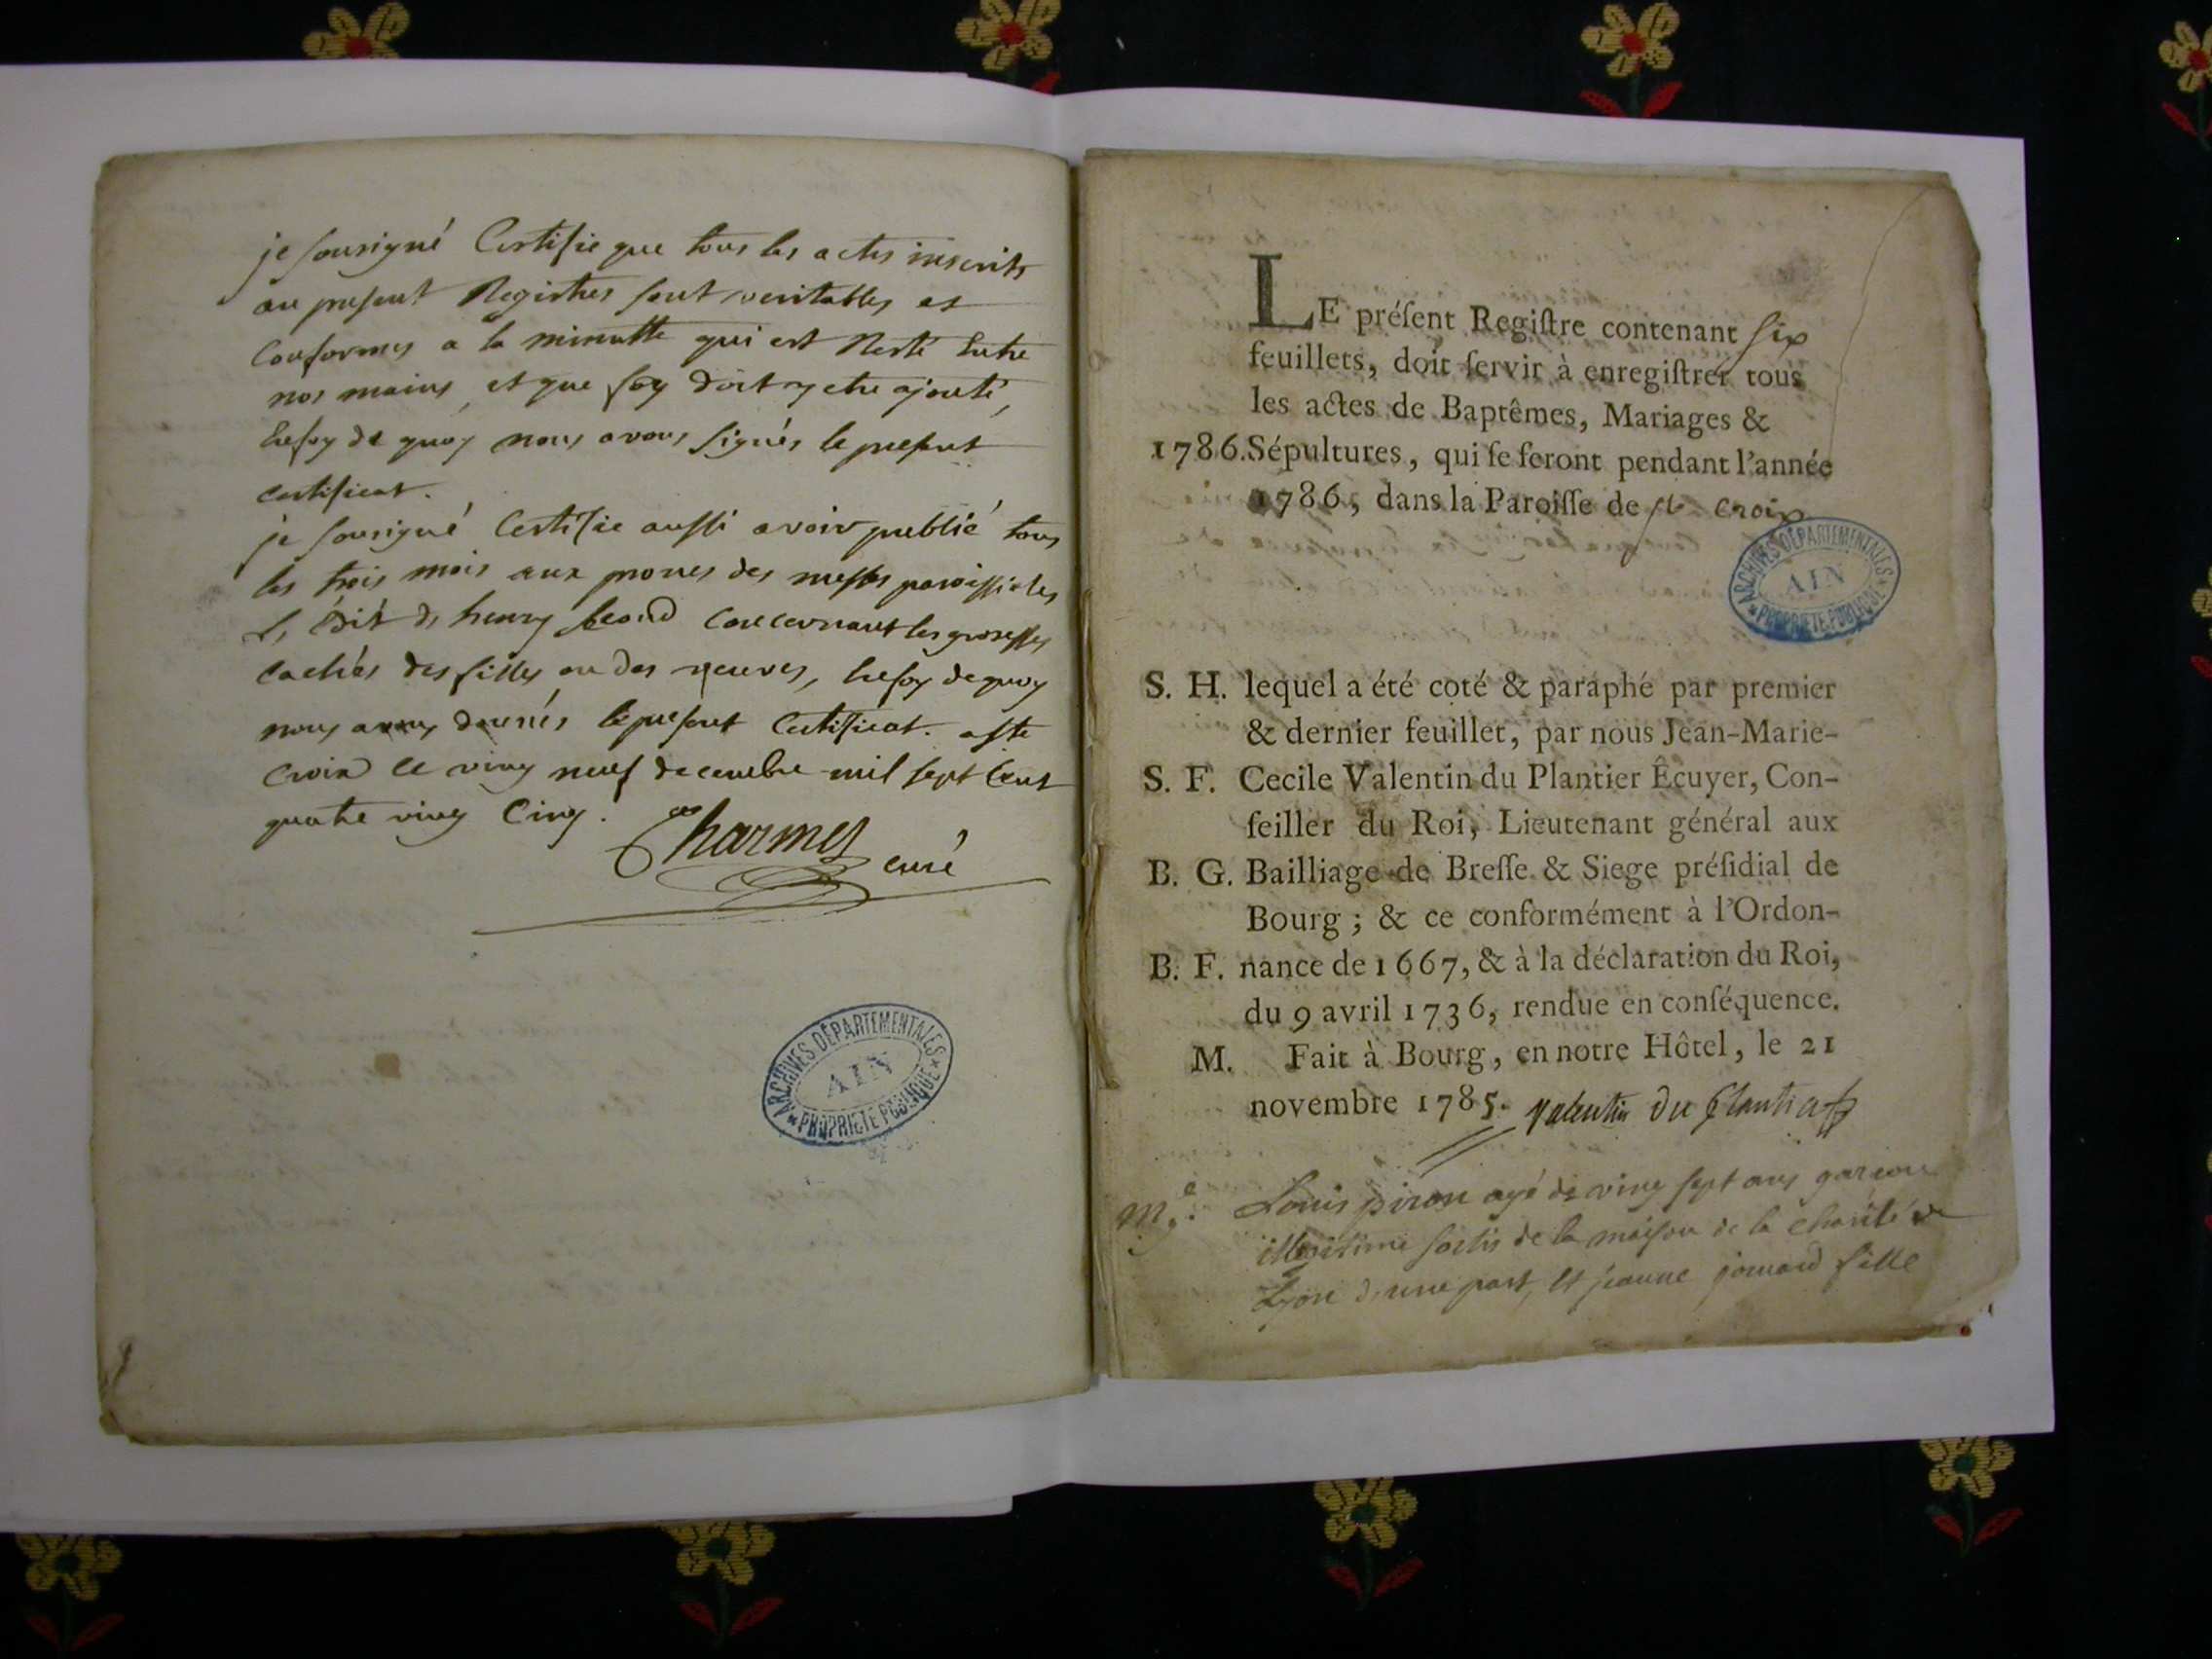 je sousigné Certifie que tous les actes inscrits
au present Registres sont veritables et
Conformes a la minutte qui est Resté Entre
nos mains, et que foy doit y etre ajouté,
Enfoy de quoy nous avons signés le present
certificat.
je sousigné Certifie aussi avoir publié tous
les trois mois aux prones des messes paroissiales
L'Edit de henry second Concernant les grossesses
cachées des filles ou des veuves, Enfoy de quoy
nous avons donnés le present Certificat. a ste
Croix ce ving neuf decembre mil sept Cent
quatre ving Cinq.
Charmes curé
ARCHIVES DÉPARTEMENTALES
AIN
*PROPRIETE PUBLIQUE*
LE préſent Regiſtre contenant six
feuillets, doit ſervir à enregiſtrer tous
les actes de Baptêmes, Mariages &
1786. Sépultures, qui ſe feront pendant l'année
1786, dans la Paroiſſe de ste Croix
ARCHIVES DÉPARTEMENTALES
AIN
*PROPRIETE PUBLIQUE*
S. H. lequel a été coté & paraphé par premier
& dernier feuillet, par nous Jean-Marie-
S. F. Cecile Valentin du Plantier Êcuyer, Con-
ſeiller du Roi, Lieutenant général aux
B. G. Bailliage de Breſſe & Siege préſidial de
Bourg ; & ce conformément à l'Ordon-
B. F. nance de 1667, & à la déclaration du Roi,
du 9 avril 1736, rendue en conſéquence.
M. Fait à Bourg, en notre Hôtel, le 21
novembre 1785. Valentin du Plantier
M.ge Louis piron agé de ving sept ans garcon
illegitime sortis de la maison de la charité de
Lyon d'une part, et jeanne jomard fille